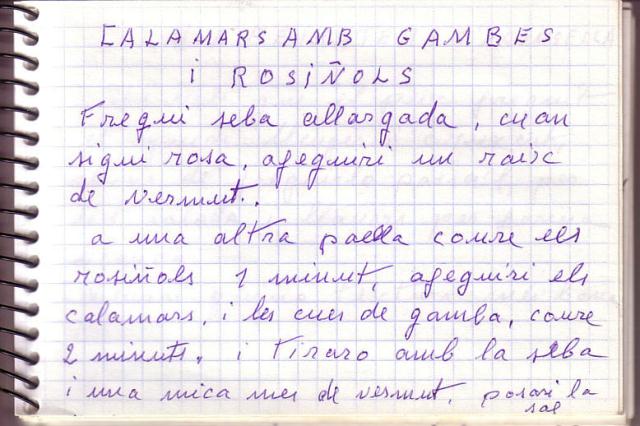 CALAMARS AMB GAMBES
i ROSIÑOLS
Fregui seba allargada, cuan
sigui rosa, afeguiri un raisc
de vermut.
a una altra paella coure els
rosiñols 1 minut, afeguiri els
calamars, i les cues de gamba, coure
2 minuts. i tiraro amb la seba
i una mica mes de vermut. posari la
sal